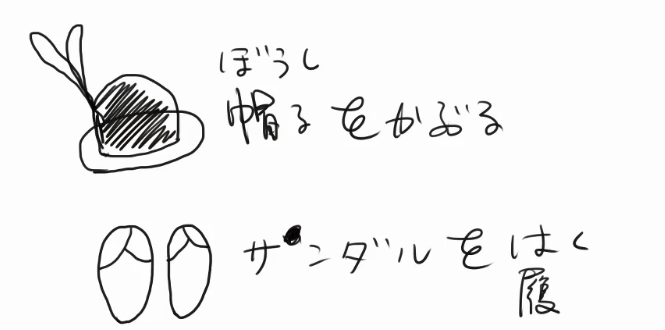 ぼうし
帽子をかぶる
サンダルをはく
履